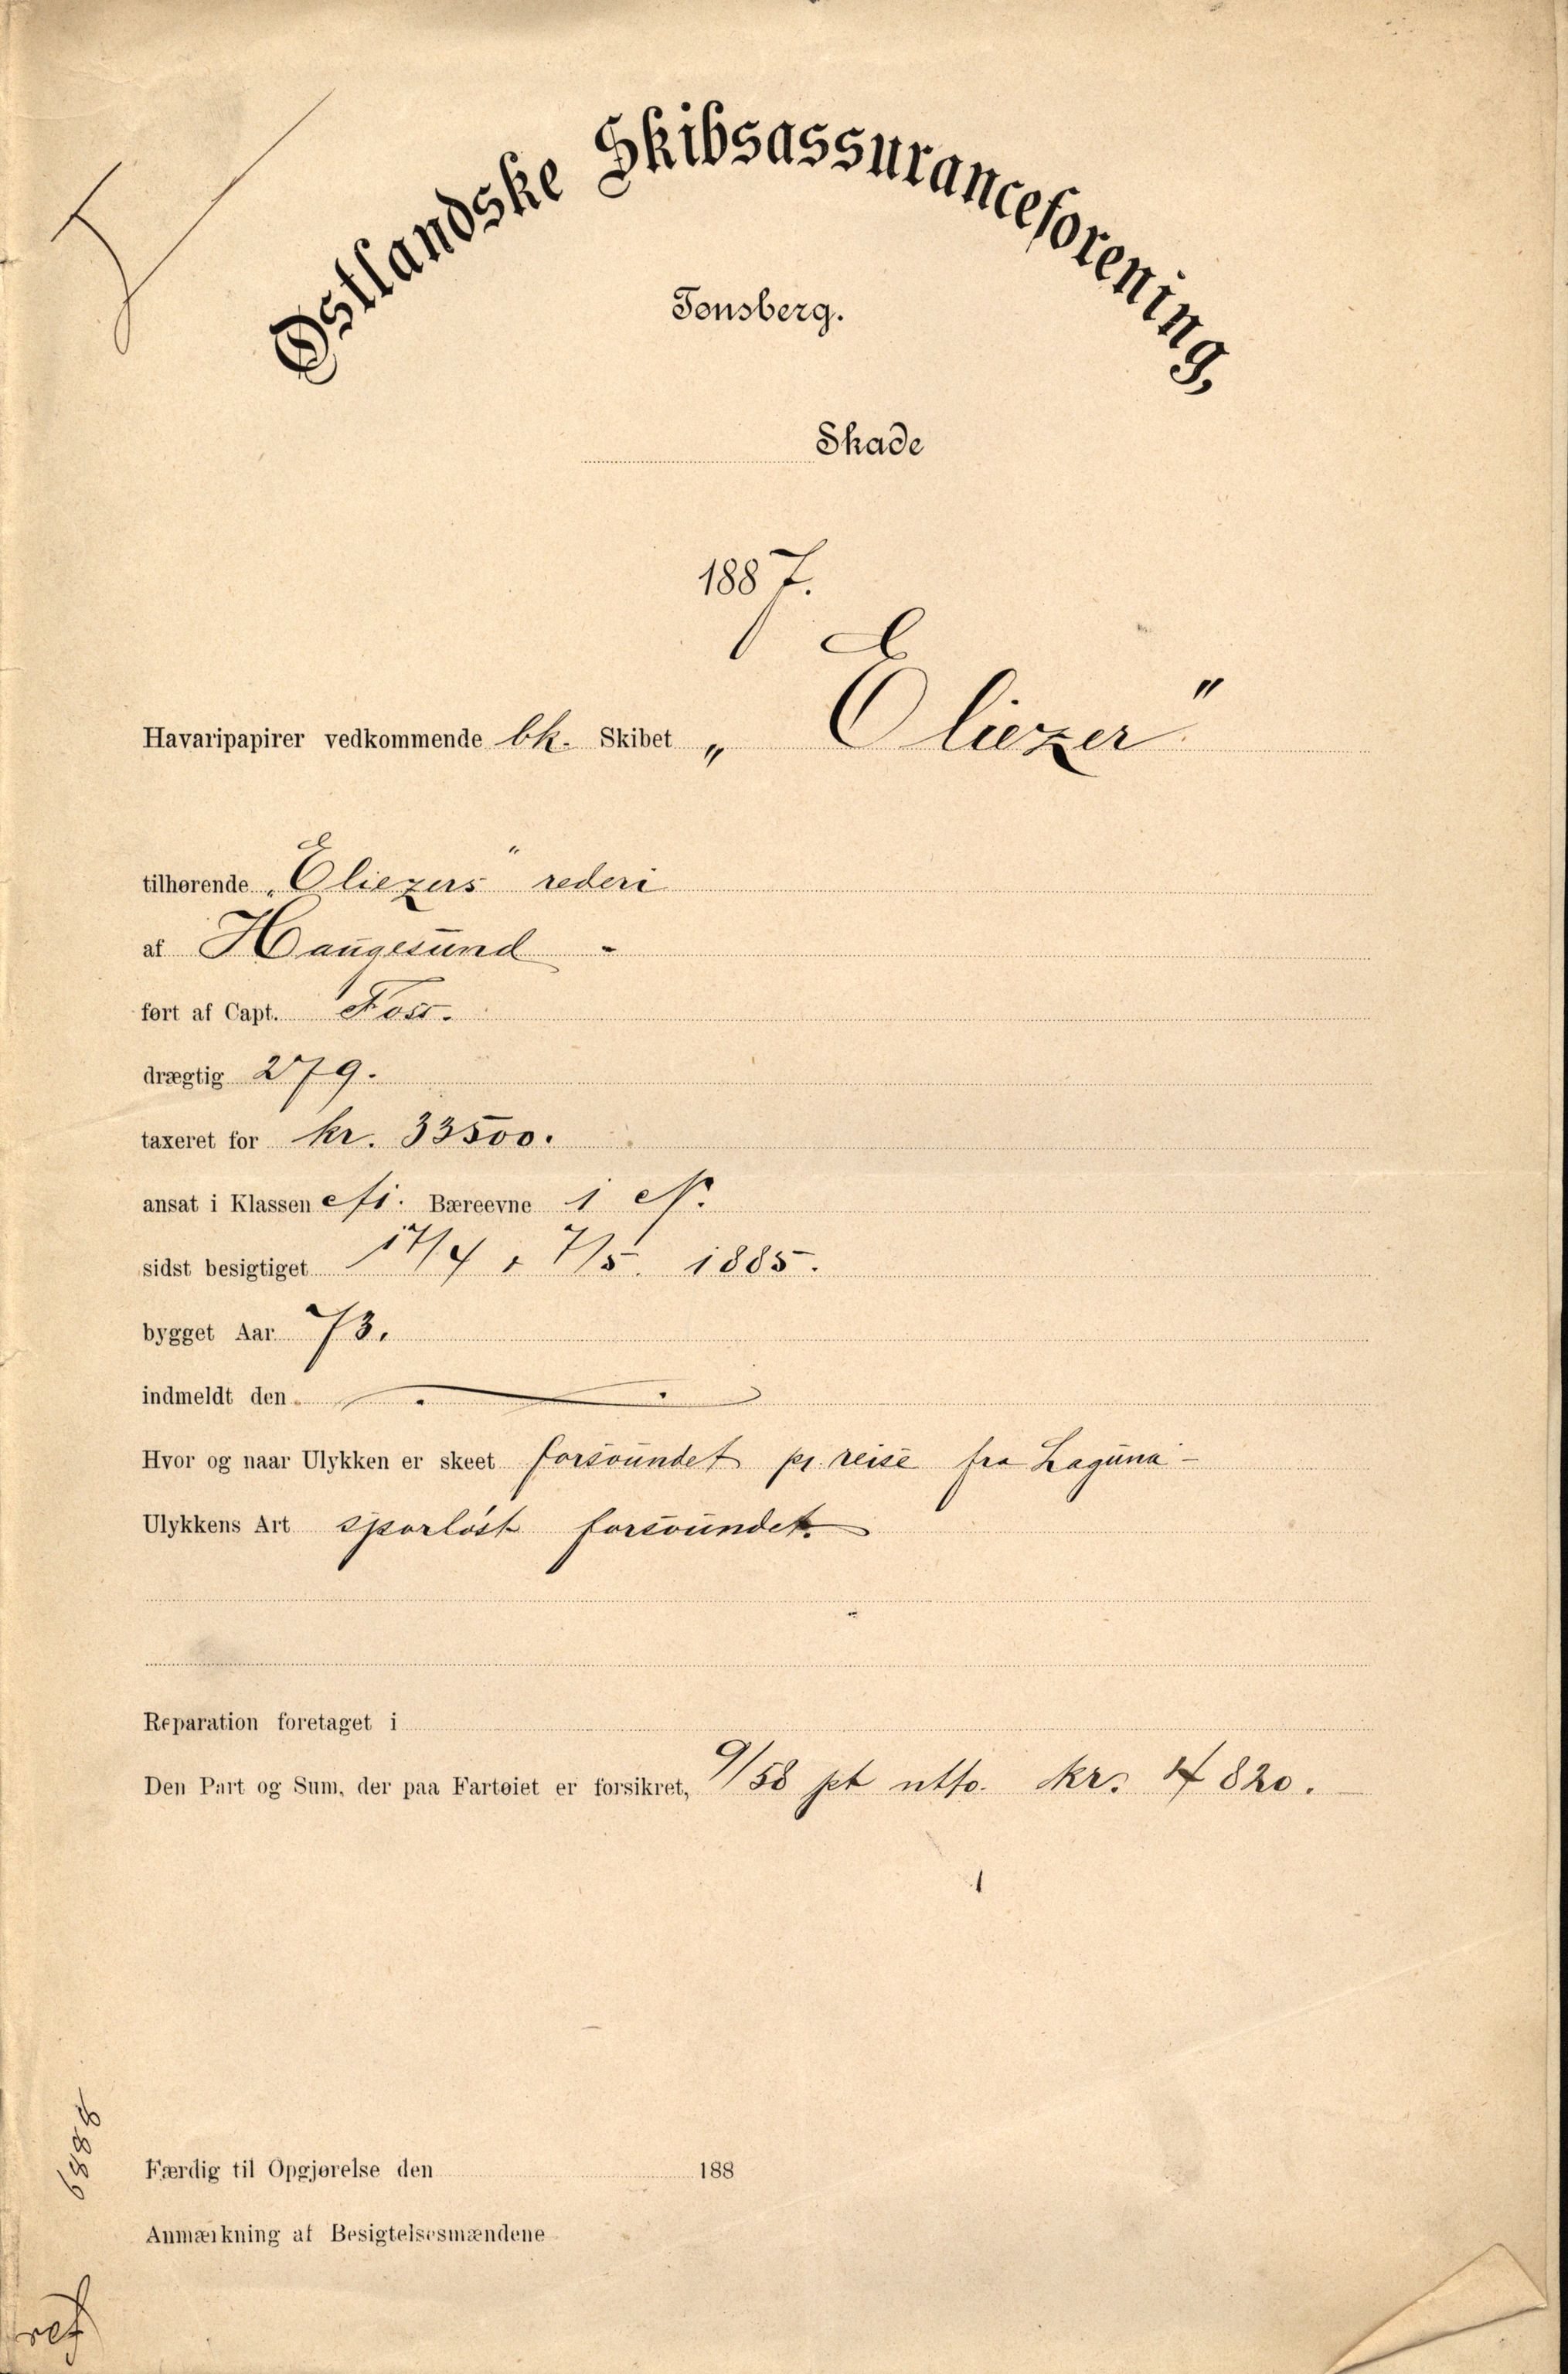 Østlandske Skibsassuranceforening,
Tønsberg.
Skade
1887.
Havaripapirer vedkommende bk. Skibet „Eliezer"
tilhørende „Eliezers" rederi
af Haugesund -
ført af Capt. Foss.
drægtig 279.
taxeret for kr. 33500.
ansat i Klassen Bæreevne 1
sidst besigtiget 17/4 7/5. 1885.
bygget Aar 73.
indmeldt den
Hvor og naar Ulykken er skeet forsvundet pr. reise fra Laguna -
Ulykkens Art sporløst forsvundet.
Reparation foretaget i
Den Part og Sum, der paa Fartøiet er forsikret, 9/58 pt ntto. kr. 4820.
Færdig til Opgjørelse den 188
Anmærkning af Besigtelsesmændene
6888
ref